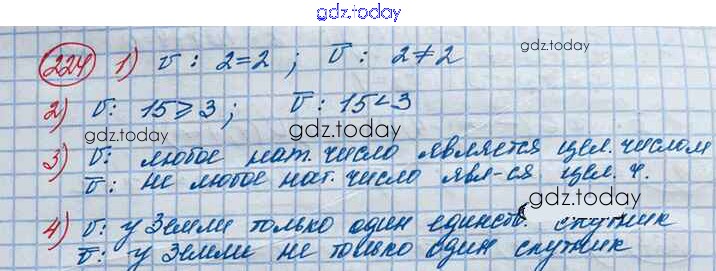 gdz.today
gdz.today
224 1) v: 2=2; v̅: 2≠2
2) v: 15⩾3; v̅: 15<3
gdz.today
gdz.today
3) v: любое нат. число является цел. числом
v̅: не любое нат. число явл-ся цел. ч.
gdz.today
4) v: у Земли только один единств. спутник
v̅: у Земли не только один спутник